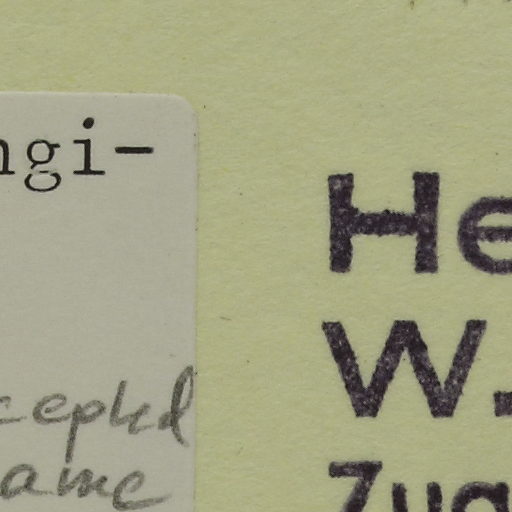 ngi-
He
W.
ccepted
ame
Zug